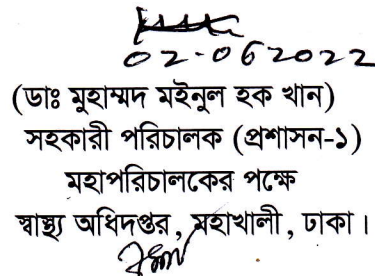 02-06-2022
(ডাঃ মুহাম্মদ মইনুল হক খান)
সহকারী পরিচালক (প্রশাসন-১)
মহাপরিচালকের পক্ষে
স্বাস্থ্য অধিদপ্তর, মহাখালী, ঢাকা।